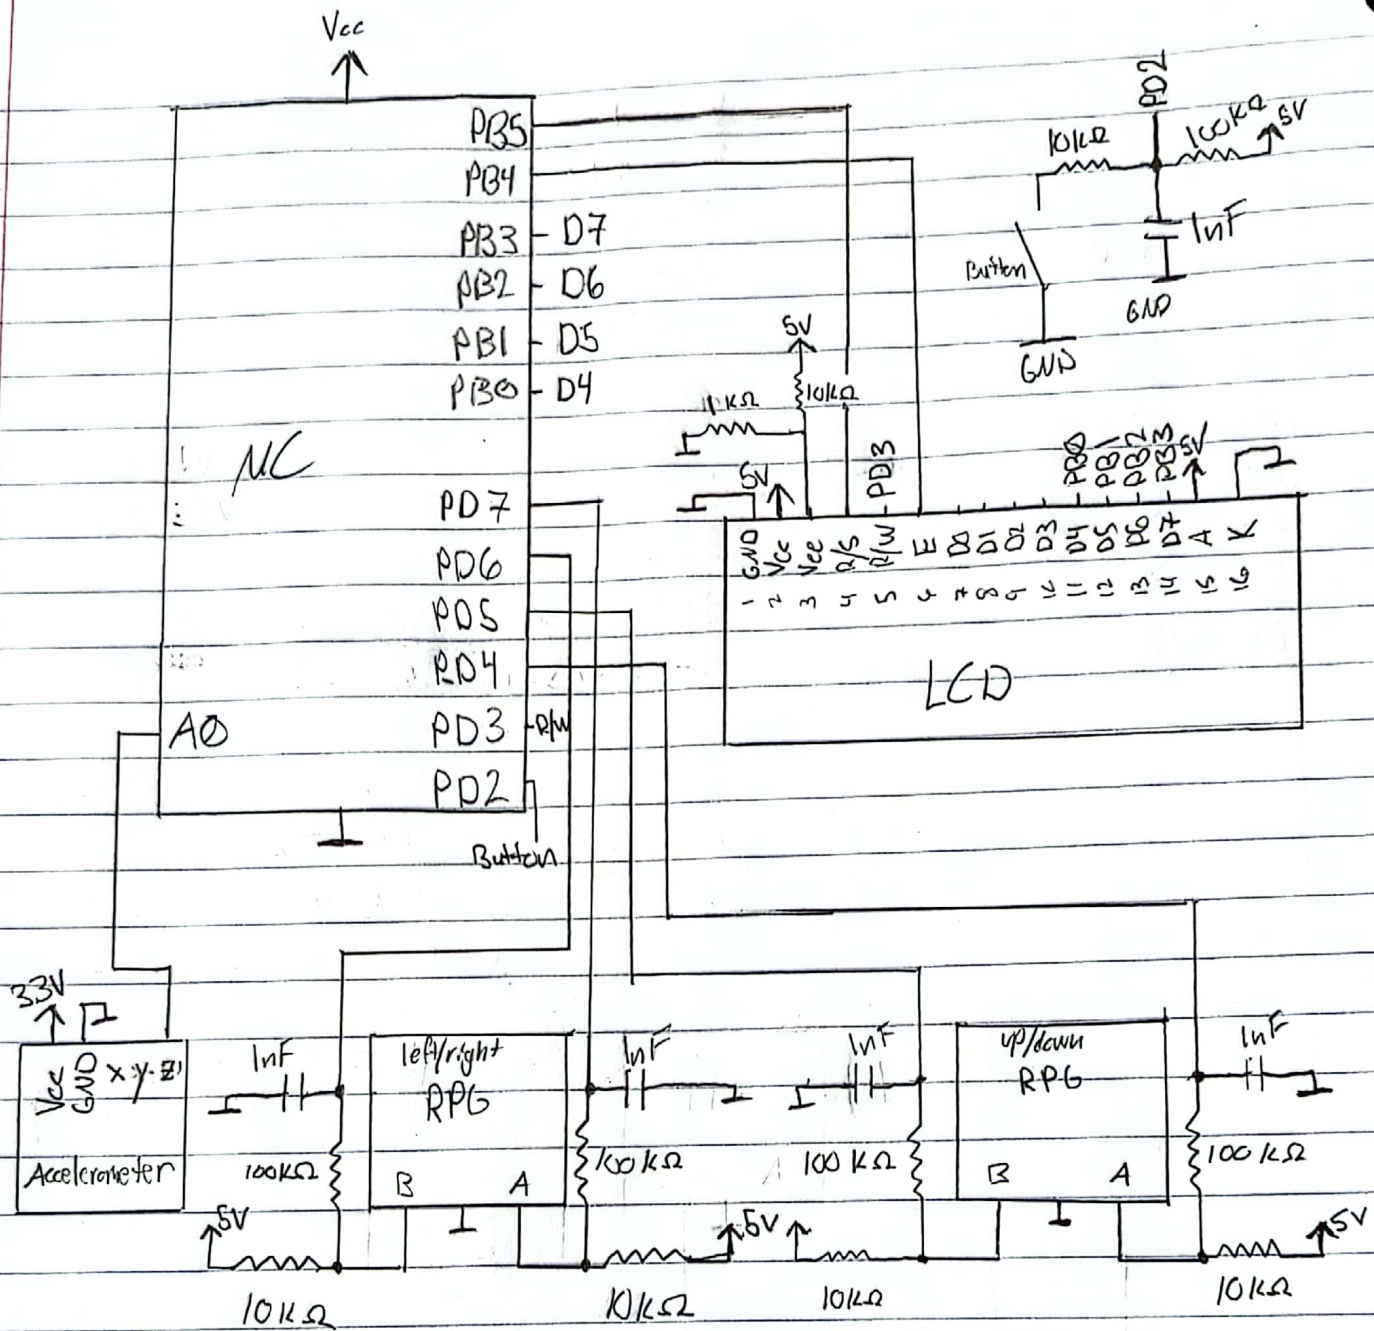 Vcc
PB5
PB4
PB3 D7
PB2 D6
PB1 D5
PB0 D4
μC
PD7
PD6
PD5
PD4
PD3 R/W
PD2
Button
A0
PD2
10kΩ
100kΩ
5V
1nF
Button
GND
GND
5V
10kΩ
1kΩ
5V
PD3
PB0
PB1
PB2
PB3
5V
GND
Vcc
Vee
R/S
R/W
E
D0
D1
D2
D3
D4
D5
D6
D7
A
K
1 2 3 4 5 6 7 8 9 10 11 12 13 14 15 16
LCD
3.3V
Vcc
GND
X-Y-Z
Accelerometer
1nF
100kΩ
5V
10kΩ
left/right
RPG
B A
1nF
100kΩ
5V
10kΩ
1nF
100kΩ
10kΩ
up/down
RPG
B A
1nF
100kΩ
5V
10kΩ